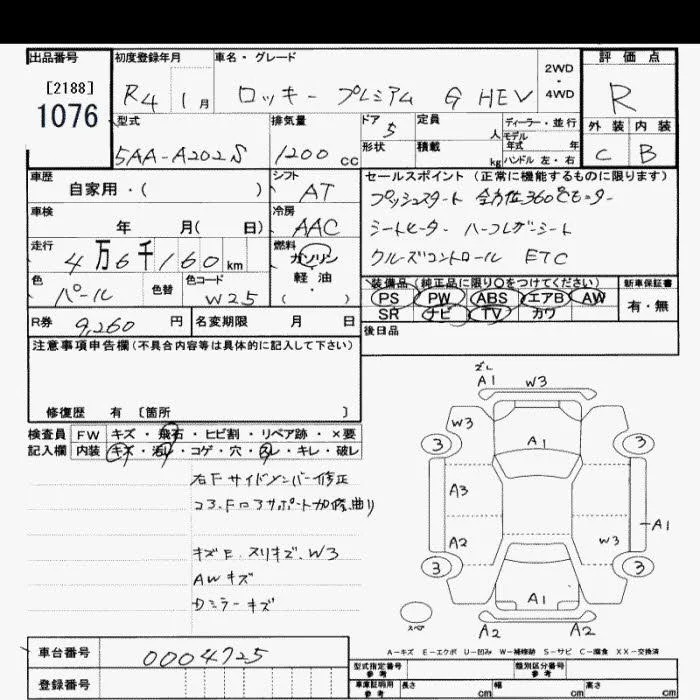 出品番号
[2188]
1076
初度登録年月
R4 1月
車名・グレード
ロッキー プレミアム G HEV
2WD
・
4WD
評価点
R
外装 内装
C B
型式
5AA-A202S
排気量
1200 cc
ドア 5
形状
定員 人
積載 kg
ディーラー・並行
モデル
年式 年
ハンドル 左・右
車歴
自家用・( )
シフト
AT
車検
年 月( 日)
冷房
AAC
走行
4万6千160km
燃料
ガソリン
軽・油
( ・ )
色
パール
色替
色コード
W25
セールスポイント (正常に機能するものに限ります)
プッシュスタート 全方位360°モニター
シートヒーター ハーフレザーシート
クルーズコントロール ETC
装備品 (純正品に限り○をつけてください)
PS PW ABS エアB AW
SR ナビ TV カワ
新車保証書
有・無
後日品
R券 9,260 円
名変期限 月 日
注意事項申告欄(不具合内容等は具体的に記入して下さい)
修復歴 有 〔箇所 〕
検査員
記入欄
FW キズ・飛石・ヒビ割・リペア跡・×要
内装 キズ・汚レ・コゲ・穴・スレ・キレ・破レ
右Fサイドメンバー修正
コアサポート加修、曲り
キズ自、スリキズ、W3
AWキズ
Dミラーキズ
ズレ
A1 W3
W3
3 3
A1
A3
A1
A2
W3
3 3
A1
スペア
A2 A2
A-キズ E-エクボ U-凹み W-補修跡 S-サビ C-腐食 XX-交換済
車台番号
0004725
登録番号
型式指定番号
参考
類別区分番号
参考
車庫証明用
参考
長さ cm
幅 cm
高さ cm